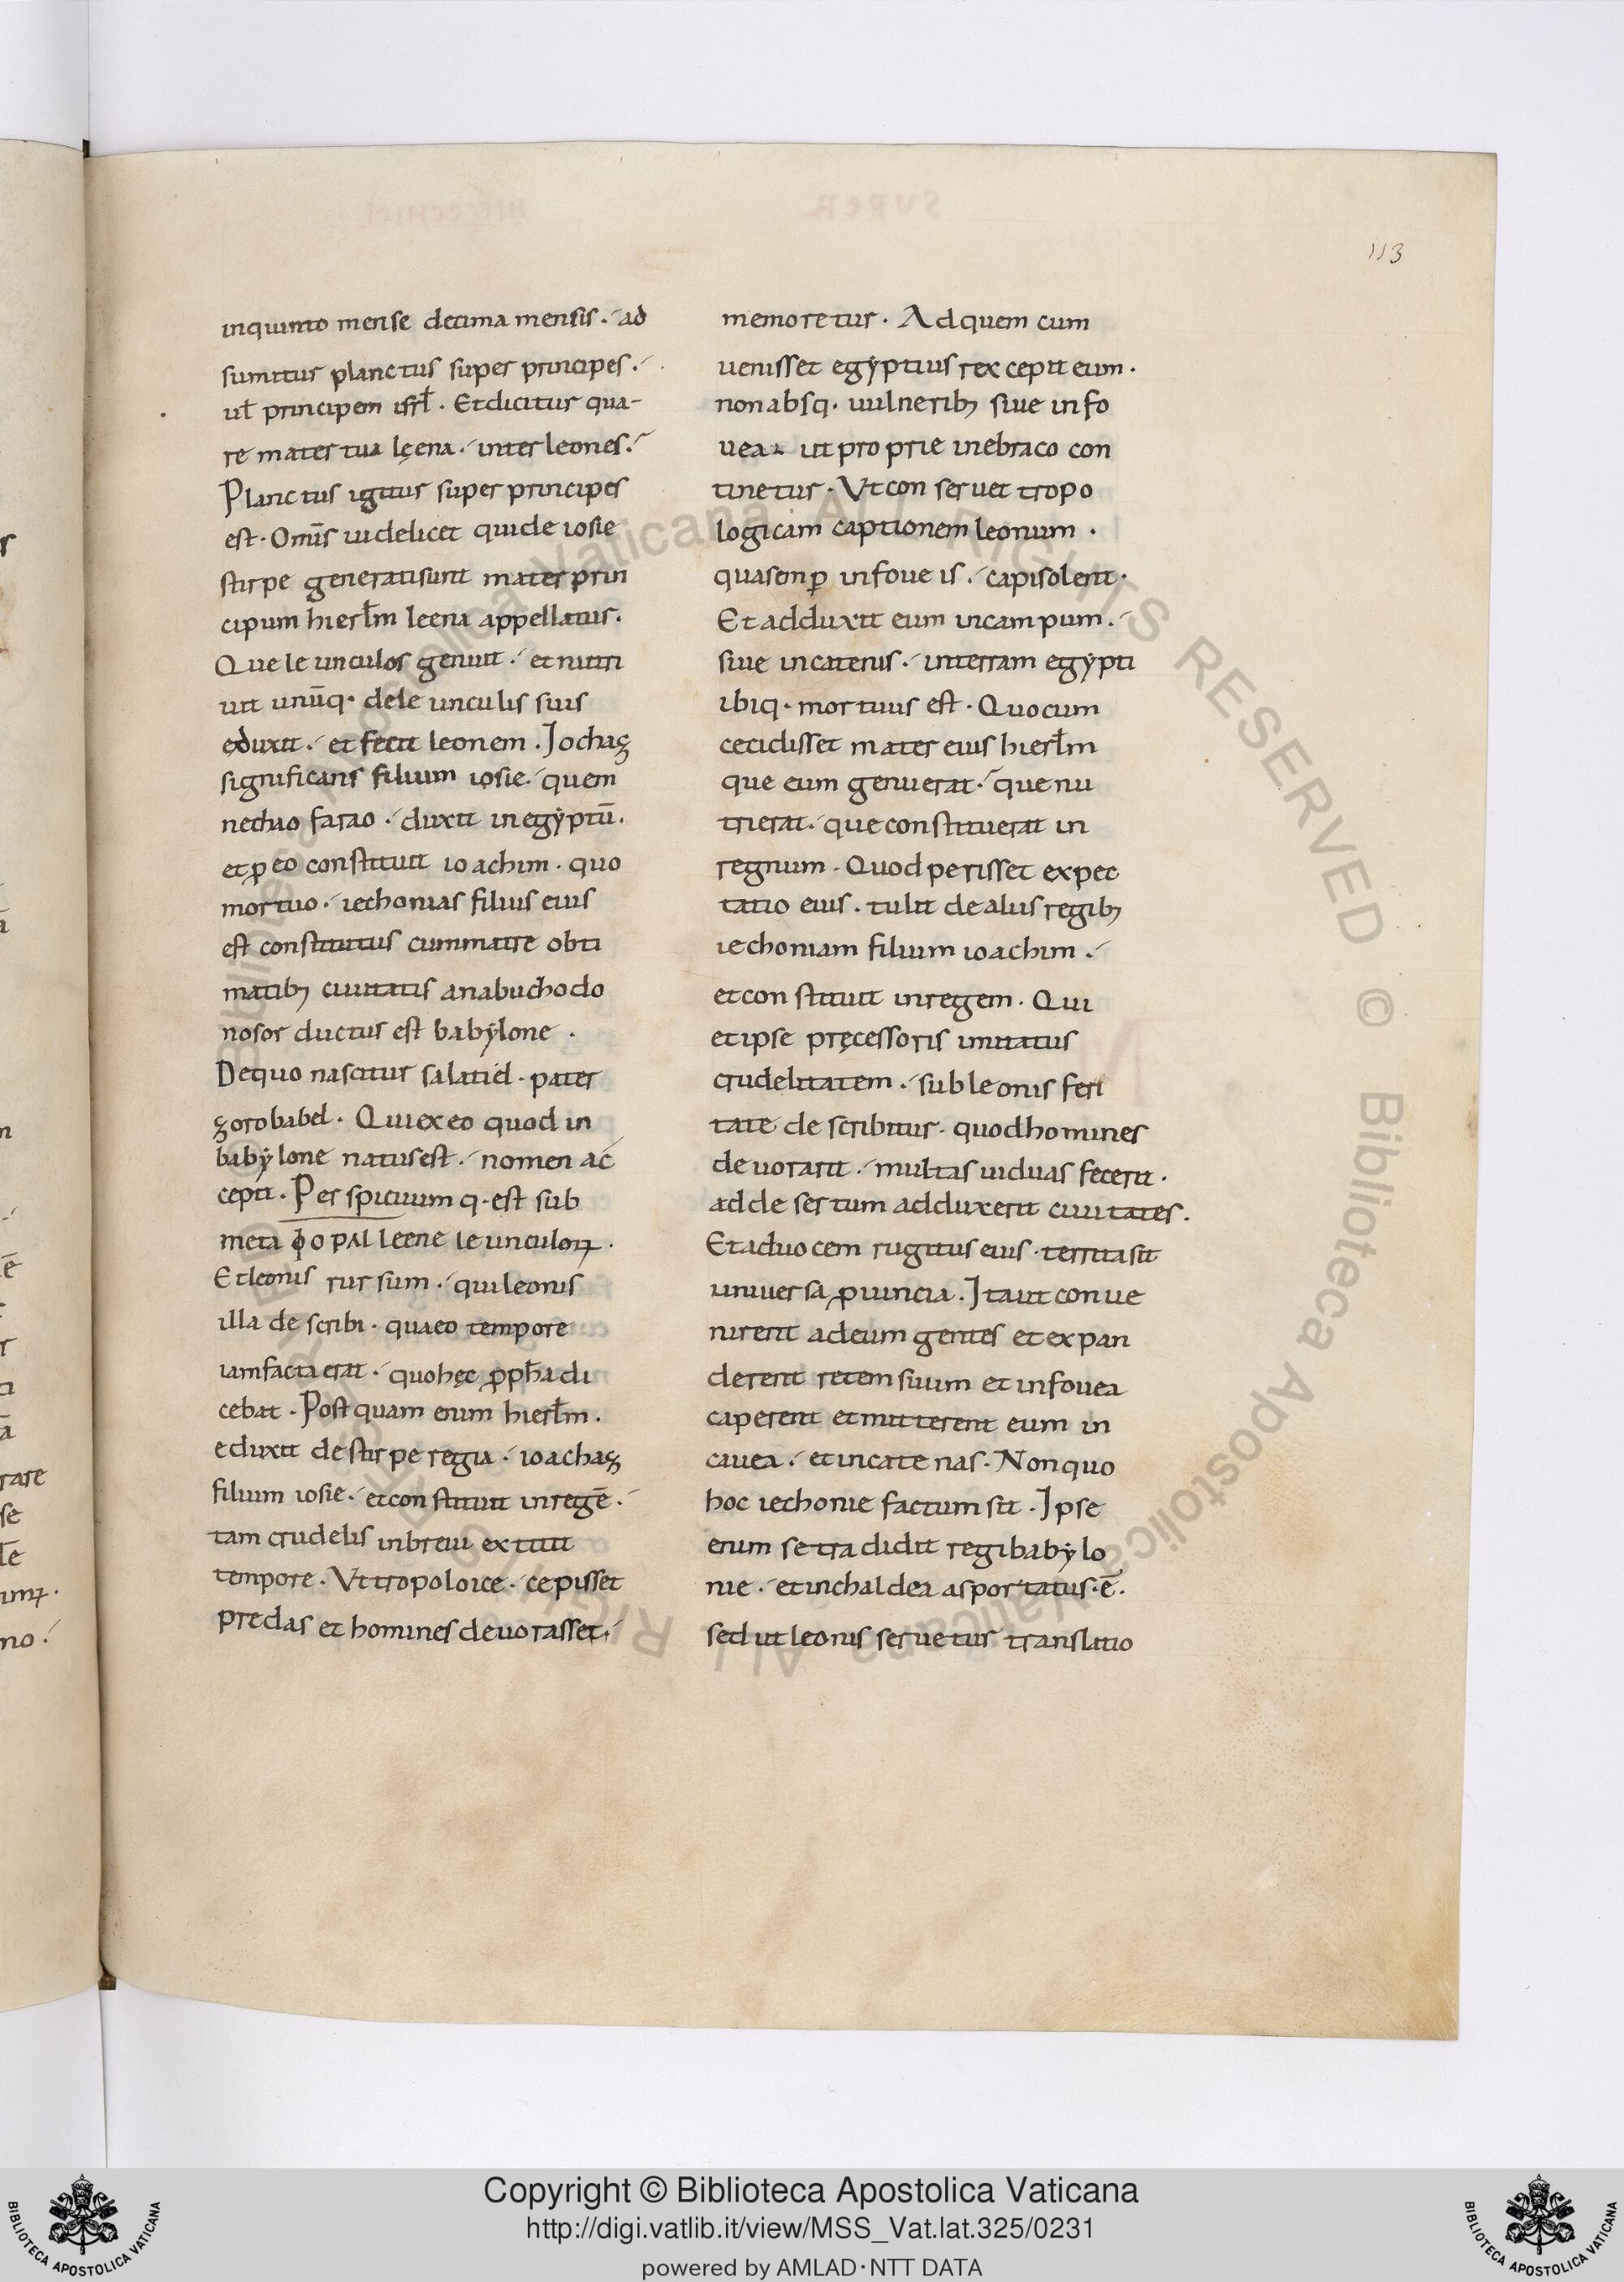 113
inquinto mense decima mensis. ad
sumitur planctus super principes.
ut̄ principem isrl̄. Et dicitur qua-
re mater tua lęena. inter leones.
Planctus igitur super principes
est. Om̄is uidelicet qui de iosie
stirpe generati sunt mater prin
cipum hierl̄m leena appellatur.
Que leunculos genuit. et nutri
uit unūq. de leunculis suis
eduxit. et fecit leonem. Jochaz
significans filium iosie. quem
nechao farao. duxit in egẏptū.
et ꝓ eo constituit ioachim. quo
mortuo. iechonias filius eius
est constitutus cum matre obti
matibꝫ ciuitatis a nabuchodo
nosor ductus est babẏlone.
De quo nascitur salatiel. pater
zorobabel. Qui ex eo quod in
babẏlone natus est. nomen ac
cepit. Perspicuum q. est sub
meta leene leunculoꝝ.
Et leonis rursum. qui leonis
illa describi. quaeo tempore
iam facta erat. quo hęc ꝓph̄a di
cebat. Postquam enim hierl̄m.
eduxit de stirpe regia. ioachaz
filium iosie. et constituit in regē.
tam crudelis in breui extitit
tempore. Vt tropoloice. cepisset
predas et homines deuorasset.
memoretur. Ad quem cum
uenisset egẏptius rex cepit eum.
non absq. uulneribꝫ siue in fo
uea ut proprie in ebraco con
tinetur. Vt conseruet tropo
logicam captionem leonum.
qua semꝑ in foueis. capi solent.
Et adduxit eum in campum.
siue in catenis. in terram egẏpti
ibiq. mortuus est. Quo cum
cecidisset mater eius hierl̄m
que eum genuerat. que nu
trierat. que constituerat in
regnum. Quod perisset expec
tatio eius. tulit de aliis regibꝫ
iechoniam filium ioachim.
et constituit in regem. Qui
et ipse pręcessoris imitatus
crudelitatem. sub leonis feri
tate describitur. quod homines
deuorarit. multas uiduas fecerit.
ad desertum adduxerit ciuitates.
Et ad uocem rugitus eius. territa sit
uniuersa ꝓuincia. Ita ut conue
nirent ad eum gentes et expan
derent retem suum et in fouea
caperent et mitterent eum in
cauea. et in catenas. Non quo
hoc iechonie factum sit. Ipse
enim se tradidit regi babẏlo
nie. et in chaldea asportatus. ē.
sed ut leonis seruetur translatio
Copyright © Biblioteca Apostolica Vaticana
http://digi.vatlib.it/view/MSS_Vat.lat.325/0231
powered by AMLAD·NTT DATA
BIBLIOTECA APOSTOLICA VATICANA
BIBLIOTECA APOSTOLICA VATICANA